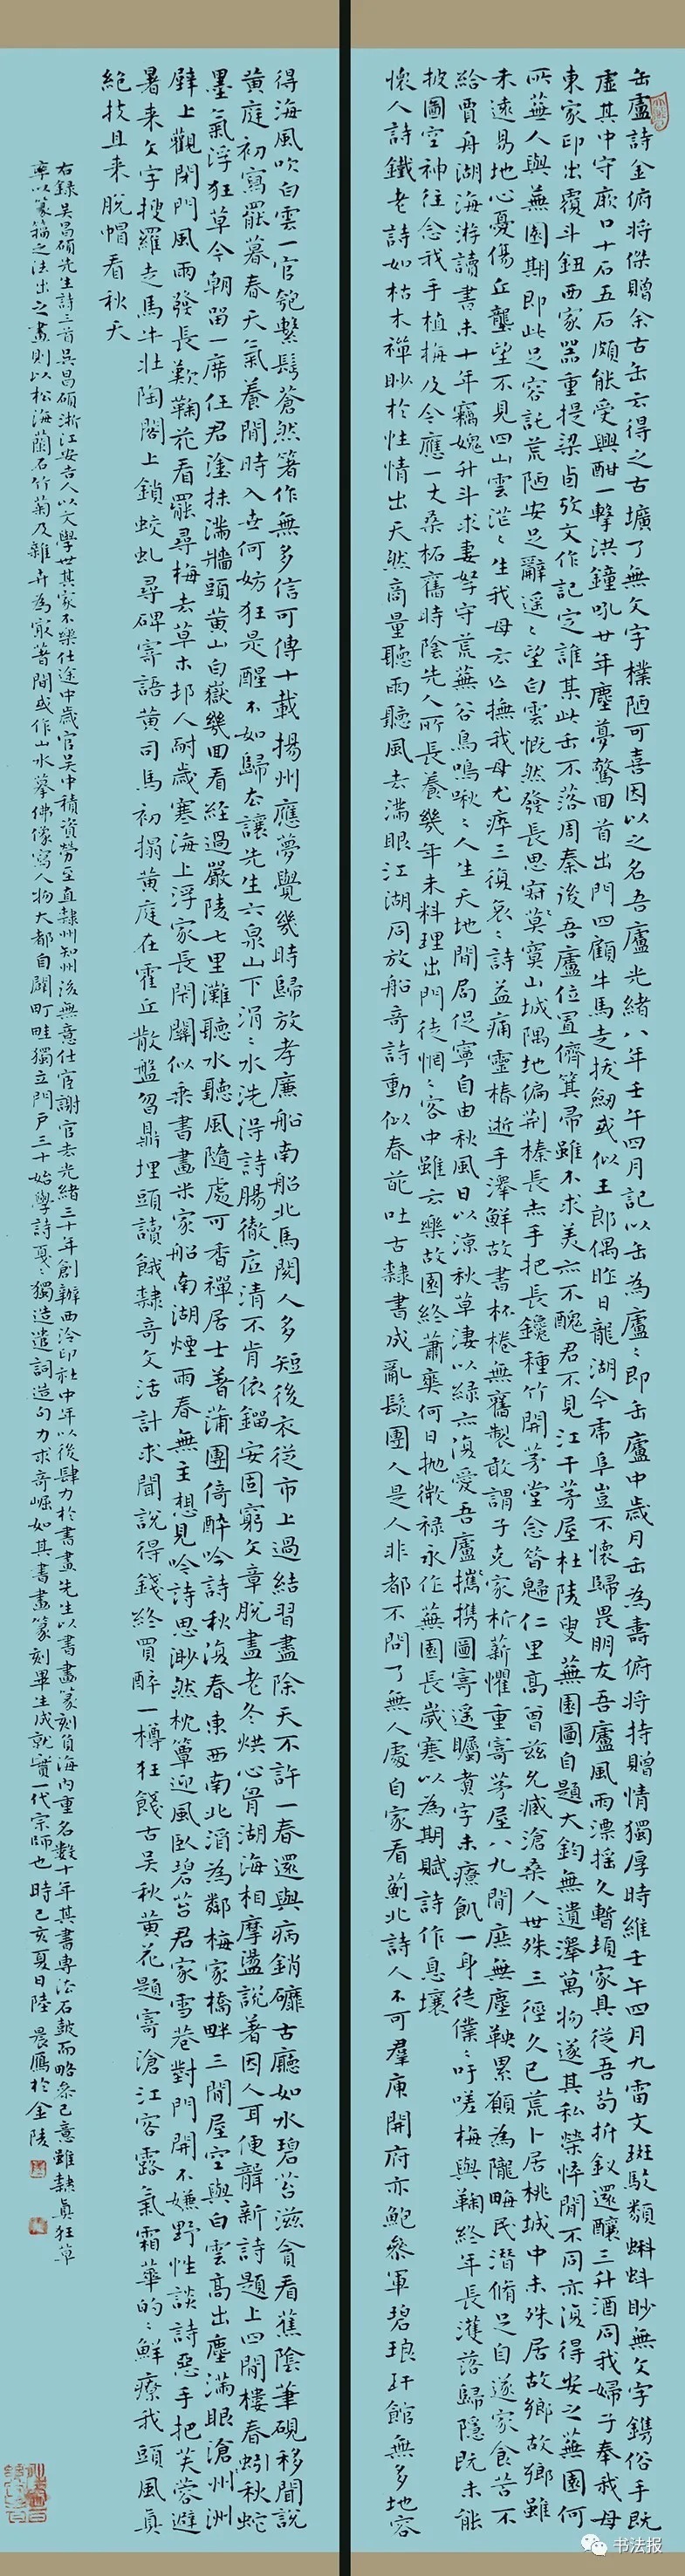 缶廬詩金俯將傑贈余古缶云得之古壙了無文字樸陋可喜因以之名吾廬光緒八年壬午四月記以缶為廬〻即缶廬中歲月缶為壽俯將持贈情獨厚時維壬午四月九雷文斑駁類蝌蚪眇無文字鐫俗手既
虛其中守厥口十石五石頗能受興酣一擊洪鐘吼廿年塵夢驚回首出門四顧牛馬走拔劒或似王郎偶昨日龍湖今虎阜豈不懷歸畏朋友吾廬風雨漂搖久暫頓家具從吾苟折釵還釀三升酒同我婦子奉我母
東家印出覆斗鈕西家器重提梁卣攷文作記定誰某此缶不落周秦後吾廬位置儕箕帚雖不求美亦不醜君不見江干茅屋杜陵叟蕪園圖自題大鈞無遺澤萬物遂其私榮悴閒不同亦復得安之蕪園何
所蕪人與蕪園期即此足容託荒陋安足辭遥〻望白雲慨然發長思寂莫寞山城隅地偏荆榛長赤手把長鑱種竹開茅堂念昝歸仁里高曾兹允臧滄桑人世殊三徑久已荒卜居桃城中未殊居故鄉故鄉雖
未遠易地心憂傷丘壟望不見四山雲茫〻生我母云亡撫我母尤瘁三復哀〻詩益痛靈椿逝手澤鮮故書杯棬無舊製敢謂子克家析薪懼重寄茅屋八九間庶無塵鞅累願為隴畮民潛脩足自遂家食苦不
給賈舟湖海游讀書未十年竊媿升斗求妻孥守荒蕪谷鳥鳴啾〻人生天地間局促寧自由秋風日以涼秋草淒以綠亦復愛吾廬攜攜圖寄遥矚煑字未療飢一身徒僕〻吁嗟梅與鞠終年長濩落歸隱既未能
披圖空神往念我手植梅及今應一丈桑柘舊時陰先人所長養幾年未料理出門徒惘〻客中雖云樂故園終蕭爽何日拋微祿永作蕪園長歲寒以為期賦詩作息壤
懷人詩鐵老詩如枯木禪眇於性情出天然商量聽雨聽風去滿眼江湖同放船奇詩動似春葩吐古隸書成亂髮團人是人非都不問了無人處自家看薊北詩人不可羣庾開府亦鮑參軍碧琅玕館無多地容
得海風吹白雲一官匏繫鬓蒼然箸作無多信可傳十載揚州應夢覺幾時歸放孝廉船南船北馬閱人多短後衣從市上過結習盡除天不許一春還與病銷磨古廳如水碧苔滋貪看蕉陰筆硯移聞說
黄庭初寫罷暮春天氣養閒時入世何妨狂是醒不如歸去讓先生六泉山下涓〻水洗得詩腸徹底清不肯依鎦安固窮文章脫盡老冬烘心骨湖海相摩盪說著因人耳便聾新詩題上四閒樓春蚓秋蛇
墨氣浮狂草今朝留一席任君塗抹滿牆頭黄山白嶽幾回看經過嚴陵七里灘聽水聽風隨處可香禪居士著蒲團倚醉吟詩秋復春東西南北滔為鄰梅家橋畔三間屋空與白雲高出塵滿眼滄州洲
壁上觀閉門風雨發長歎鞠花看罷尋梅去草木邦人耐歲寒海上浮家長閉關似乘書畫米家船南湖煙雨春無主想見吟詩思渺然枕簟迎風臥碧苔君家雪巷對門開不嫌野性談詩惡手把芙蓉避
暑来文字搜羅走馬牛壯陶閣上鎖蛟虬尋碑寄語黄司馬初搨黄庭在霍丘散盤曶鼎埋頭讀餓隸奇文活計求聞說得錢終買醉一樽狂餞古吴秋黄花題寄滄江客露氣霜華的〻鮮療我頭風真
絕技且来脫帽看秋天
右錄吴昌碩先生詩三首吴昌碩浙江安吉人以文學世其家不樂仕途中歲官吴中積資勞至直隸州知州後無意仕宦謝官去光緒三十年創辦西泠印社中年以後肆力於書畫先生以書畫篆刻負海内重名數十年其書專法石皷而略參己意雖隸真狂草
率以篆籀之法出之畫則以松海蘭石竹菊及雜卉為最著間或作山水摹佛像寫人物大都自闢町畦獨立門户三十始學詩戛〻獨造遣詞造句力求奇崛如其書畫篆刻畢生成就實一代宗師也時己亥夏日陸晨鷹於金陵
书法报